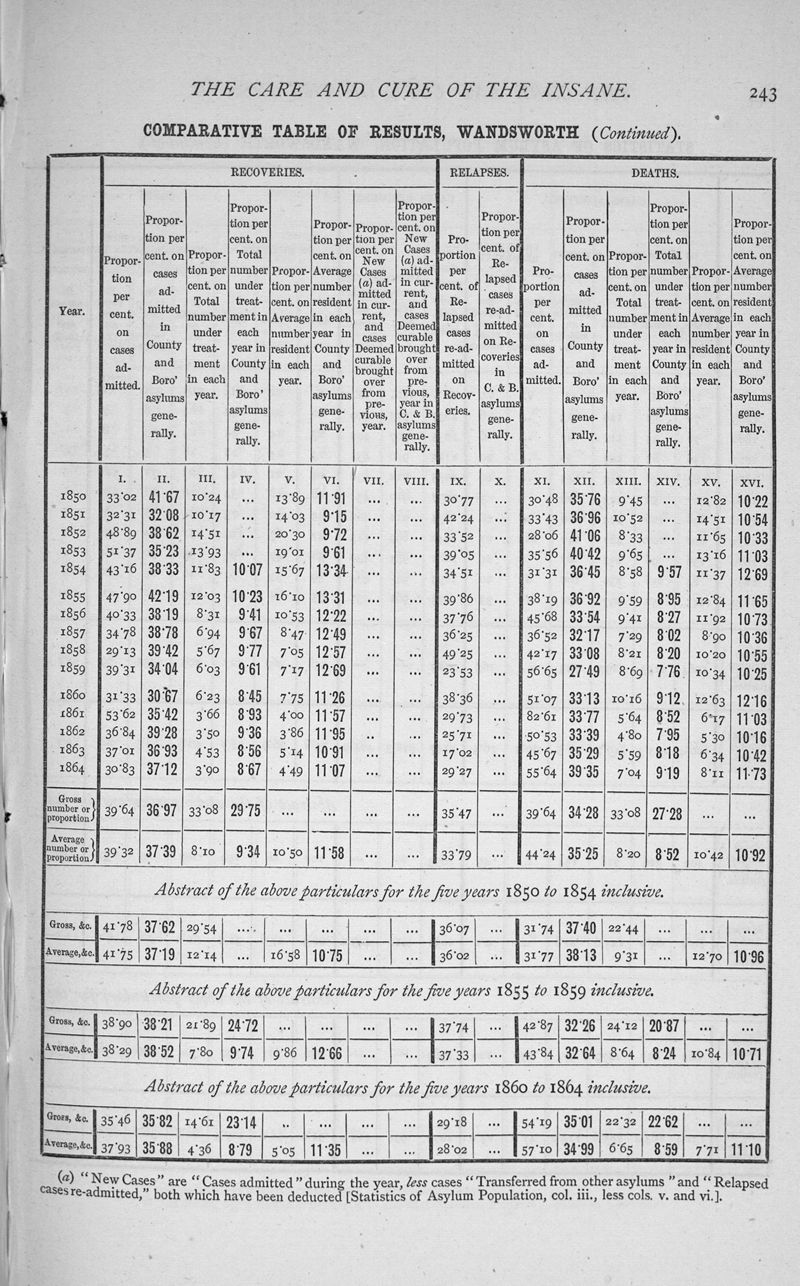 THE CARE AND CURE OF THE INSANE. 243
COMPARATIVE TABLE OF RESULTS, WANDSWORTH (Continued).
Year.
RECOVERIES. RELAPSES. DEATHS.
Proportion per cent. on cases admitted.
Proportion per cent. on cases admitted in County and Boro' asylums generally.
Proportion per cent. on Total number under treatment in each year.
Proportion per cent. on Total number under treatment in each year in County and Boro' asylums generally.
Proportion per cent. on Average number resident in each year.
Proportion per cent. on Average number resident in each year in County and Boro' asylums generally.
Proportion per cent. on New Cases (a) admitted in current, and cases Deemed curable brought over from previous, year.
Proportion per cent. on New Cases (a) admitted in current, and cases Deemed curable brought over from previous, year in C. & B. asylums generally.
Proportion per cent. of Relapsed cases re-admitted on Recoveries.
Proportion per cent. of Relapsed cases re-admitted on Recoveries in C. & B. asylums generally.
Proportion per cent. on cases admitted.
Proportion per cent. on cases admitted in County and Boro' asylums generally.
Proportion per cent. on Total number under treatment in each year.
Proportion per cent. on Total number under treatment in each year in County and Boro' asylums generally.
Proportion per cent. on Average number resident in each year.
Proportion per cent. on Average number resident in each year in County and Boro' asylums generally.
I. II. III. IV. V. VI. VII. VIII. IX. X. XI. XII. XIII. XIV. XV. XVI.
1850 33·02 41·67 10·24 ... 13·89 11·91 ... ... 30·77 ... 30·48 35·76 9·45 ... 12·82 10·22
1851 32·31 32·08 10·17 ... 14·03 9·15 ... ... 42·24 ... 33·43 36·96 10·52 ... 14·51 10·54
1852 48·89 38·62 14·51 ... 20·30 9·72 ... ... 33·52 ... 28·06 41·06 8·33 ... 11·65 10·33
1853 51·37 35·23 13·93 ... 19·01 9·61 ... ... 39·05 ... 35·56 40·42 9·65 ... 13·16 11·03
1854 43·16 38·33 11·83 10·07 15·67 13·34 ... ... 34·51 ... 31·31 36·45 8·58 9·57 11·37 12·69
1855 47·90 42·19 12·03 10·23 16·10 13·31 ... ... 39·86 ... 38·19 36·92 9·59 8·95 12·84 11·65
1856 40·33 38·19 8·31 9·41 10·53 12·22 ... ... 37·76 ... 45·68 33·54 9·41 8·27 11·92 10·73
1857 34·78 38·78 6·94 9·67 8·47 12·49 ... ... 36·25 ... 36·52 32·17 7·29 8·02 8·90 10·36
1858 29·13 39·42 5·67 9·77 7·05 12·57 ... ... 49·25 ... 42·17 33·08 8·21 8·20 10·20 10·55
1859 39·31 34·04 6·03 9·61 7·17 12·69 ... ... 23·53 ... 56·65 27·49 8·69 7·76 10·34 10·25
1860 31·33 30·67 6·23 8·45 7·75 11·26 ... ... 38·36 ... 51·07 33·13 10·16 9·12 12·63 12·16
1861 53·62 35·42 3·66 8·93 4·00 11·57 ... ... 29·73 ... 82·61 33·77 5·64 8·52 6·17 11·03
1862 36·84 39·28 3·50 9·36 3·86 11·95 .. ... 25·71 ... 50·53 33·39 4·80 7·95 5·30 10·16
1863 37·01 36·93 4·53 8·56 5·14 10·91 ... ... 17·02 ... 45·67 35·29 5·59 8·18 6·34 10·42
1864 30·83 37·12 3·90 8·67 4·49 11·07 ... ... 29·27 ... 55·64 39·35 7·04 9·19 8·11 11·73
Gross number or proportion} 39·64 36·97 33·08 29·75 ... ... ... ... 35·47 ... 39·64 34·28 33·08 27·28 ... ...
Average number or proportion} 39·32 37·39 8·10 9·34 10·50 11·58 ... ... 33·79 ... 44·24 35·25 8·20 8·52 10·42 10·92
Abstract of the above particulars for the five years 1850 to 1854 inclusive.
Gross, &c. 41·78 37·62 29·54 ... ... ... ... ... 36·07 ... 31·74 37·40 22·44 ... ... ...
Average,&c. 41·75 37·19 12·14 ... 16·58 10·75 ... ... 36·02 ... 31·77 38·13 9·31 ... 12·70 10·96
Abstract of the above particulars for the five years 1855 to 1859 inclusive.
Gross, &c. 38·90 38·21 21·89 24·72 ... ... ... ... 37·74 ... 42·87 32·26 24·12 20·87 ... ...
Average,&c. 38·29 38·52 7·80 9·74 9·86 12·66 ... ... 37·33 ... 43·84 32·64 8·64 8·24 10·84 10·71
Abstract of the above particulars for the five years 1860 to 1864 inclusive.
Gross, &c. 35·46 35·82 14·61 23·14 .. ... ... ... 29·18 ... 54·19 35·01 22·32 22·62 ... ...
Average,&c. 37·93 35·88 4·36 8·79 5·05 11·35 ... ... 28·02 ... 57·10 34·99 6·65 8·59 7·71 11·10
(a) "New Cases" are "Cases admitted" during the year, less cases "Transferred from other asylums" and "Relapsed
cases re-admitted," both which have been deducted [Statistics of Asylum Population, col. iii., less cols. v. and vi.].